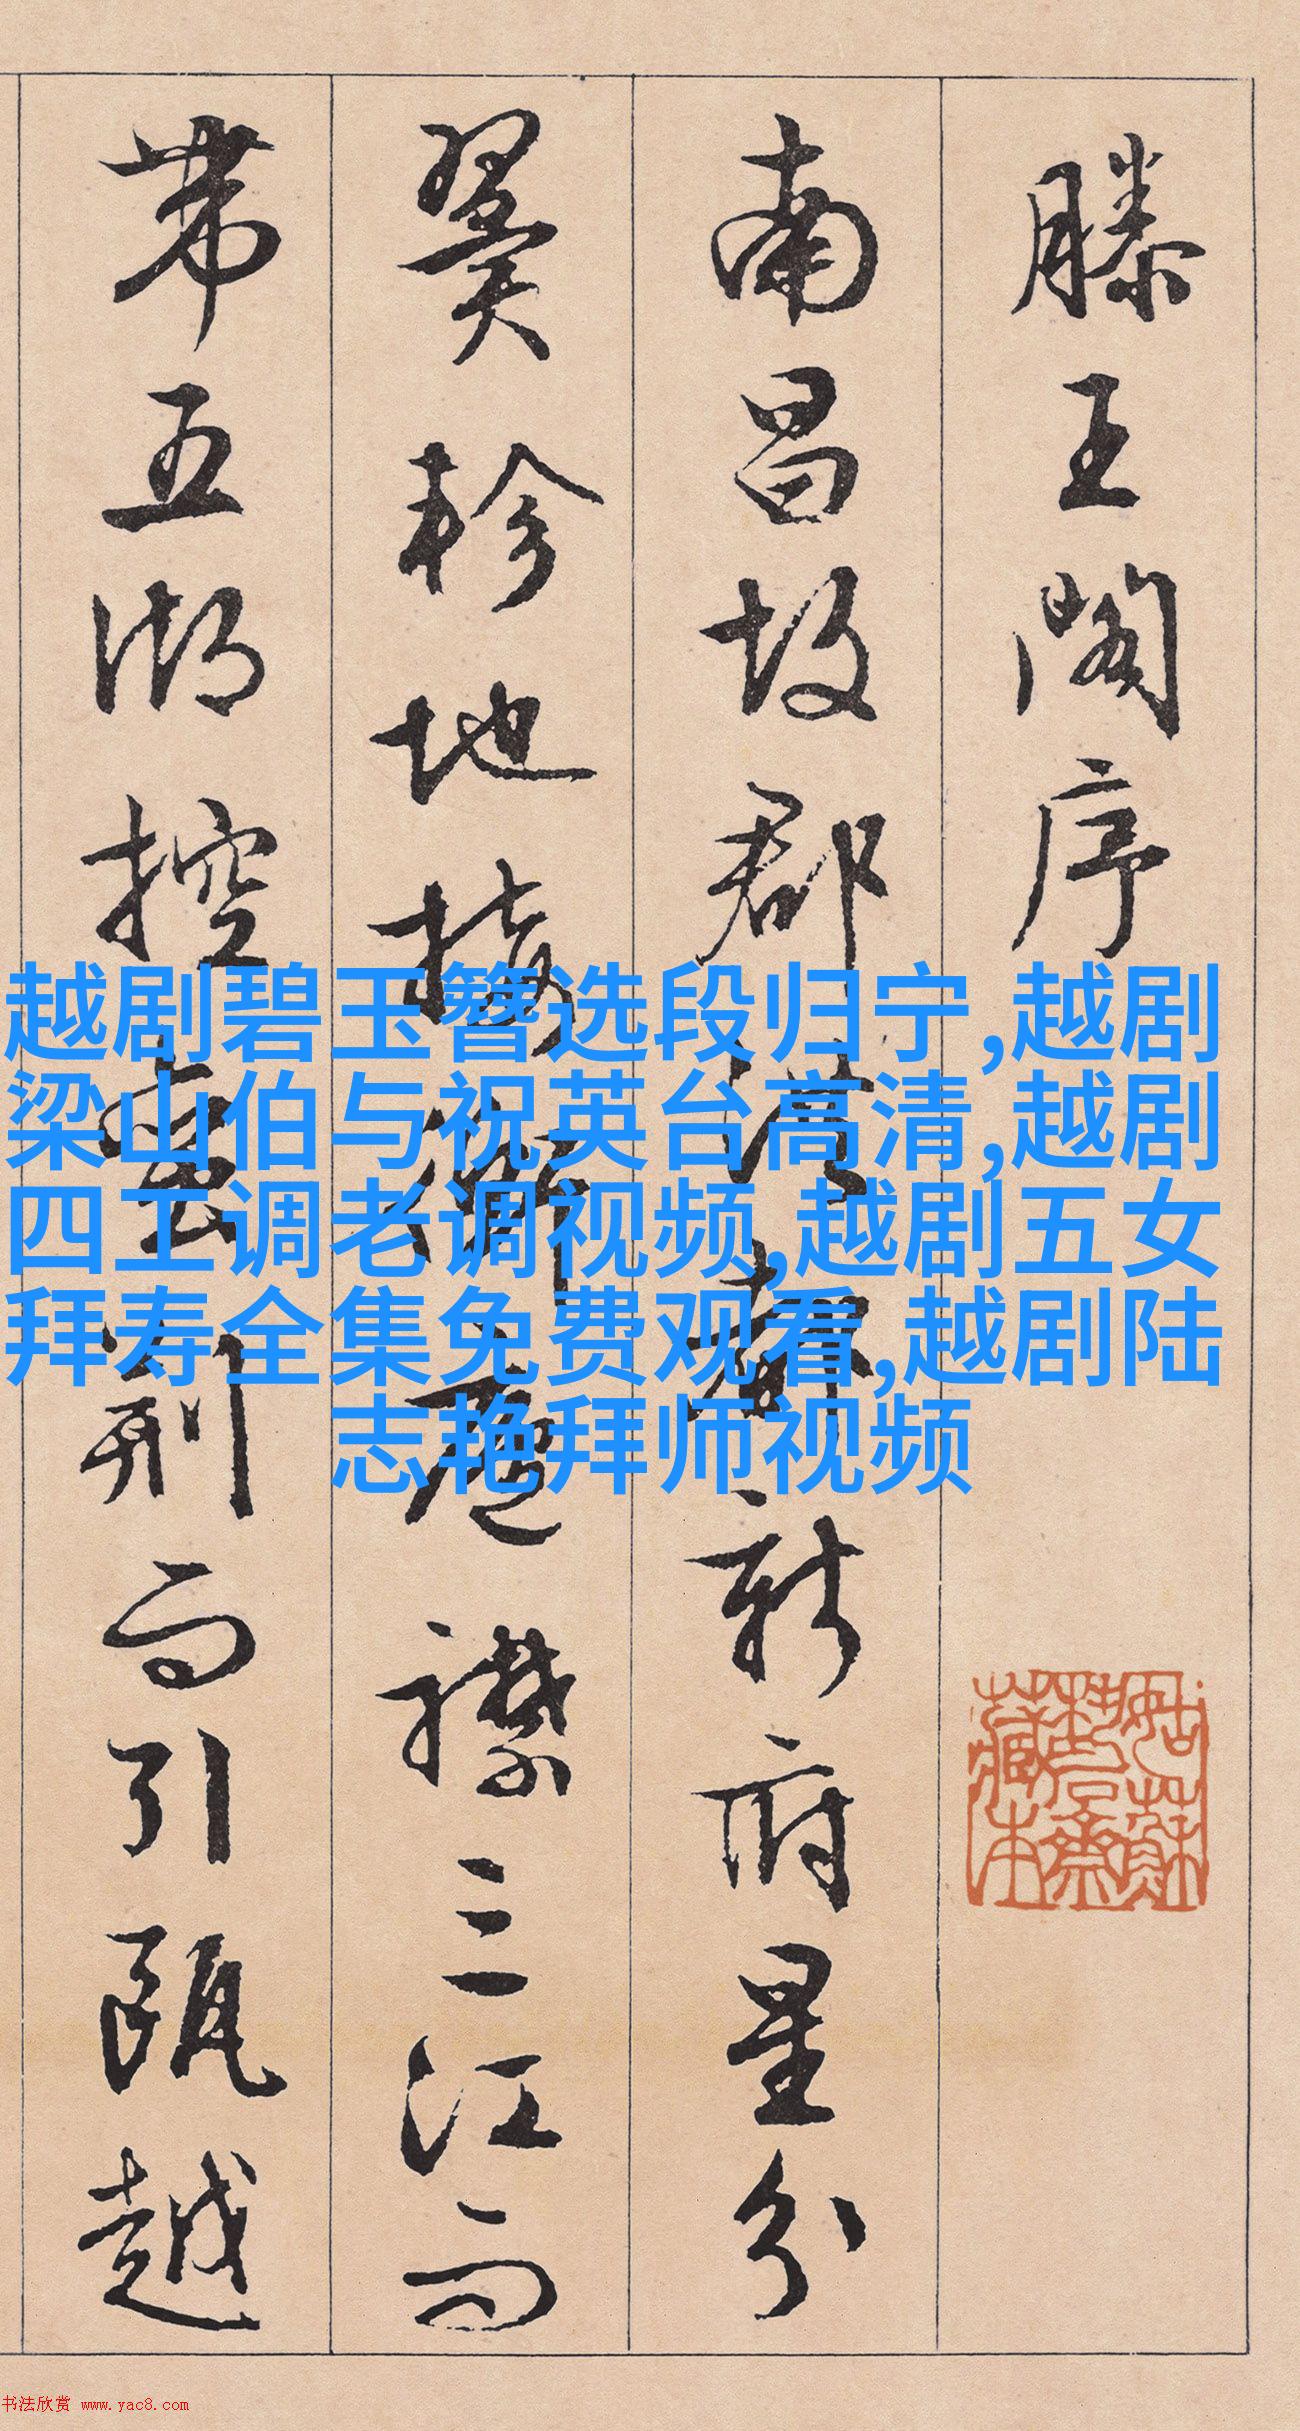 滕王閣序
南昌故郡洪都新府星分
翼軫地接衡廬襟三江而
帶五湖控蠻荊而引甌越
越剧碧玉簪选段归宁,越剧
梁山伯与祝英台高清,越剧
四工调老调视频,越剧五女
拜寿全集免费观看,越剧陆
志艳拜师视频
书法欣赏 www.yac8.com